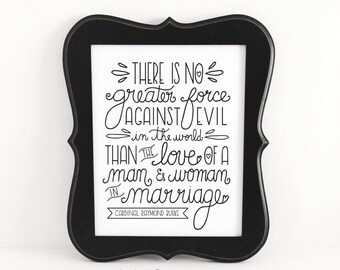 THERE IS NO
greater force
AGAINST EVIL
in the world
THAN THE love OF A
man & woman
IN marriage
CARDINAL RAYMOND BURKE